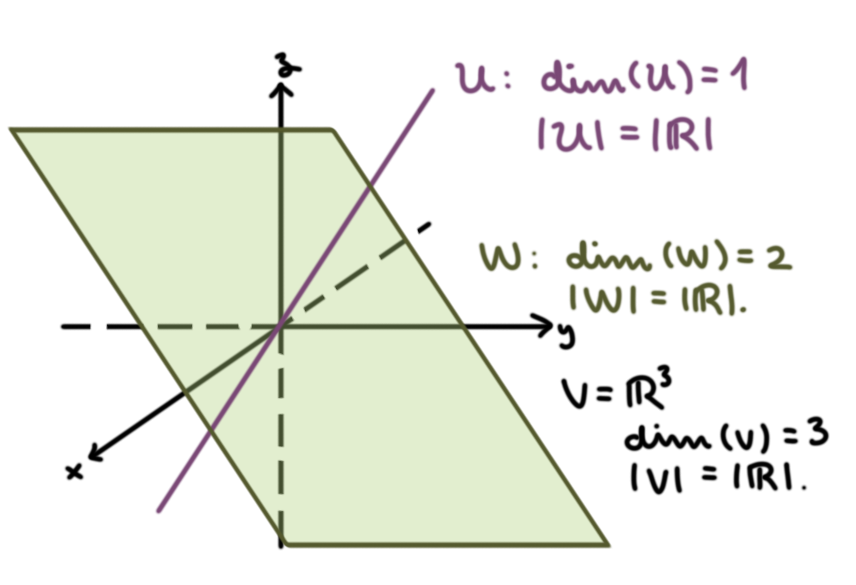 z
U: dim(U) = 1
|U| = |ℝ|
W: dim(W) = 2
|W| = |ℝ|.
y
V = ℝ³
dim(V) = 3
|V| = |ℝ|.
x